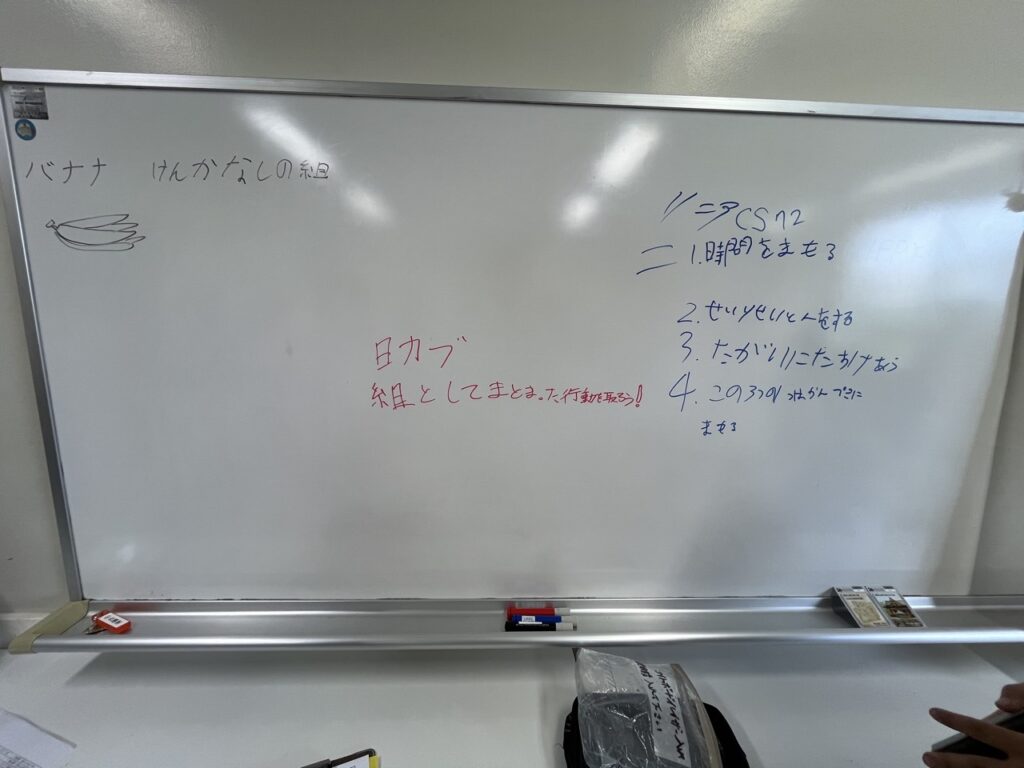 バナナ けんかなしの組
日カブ
組としてまとまった行動を取ろう!
リニアCS12
1.時間をまもる
2.せいりせいとんをする
3.たがいにたちけあう
4.この3つの
まもる